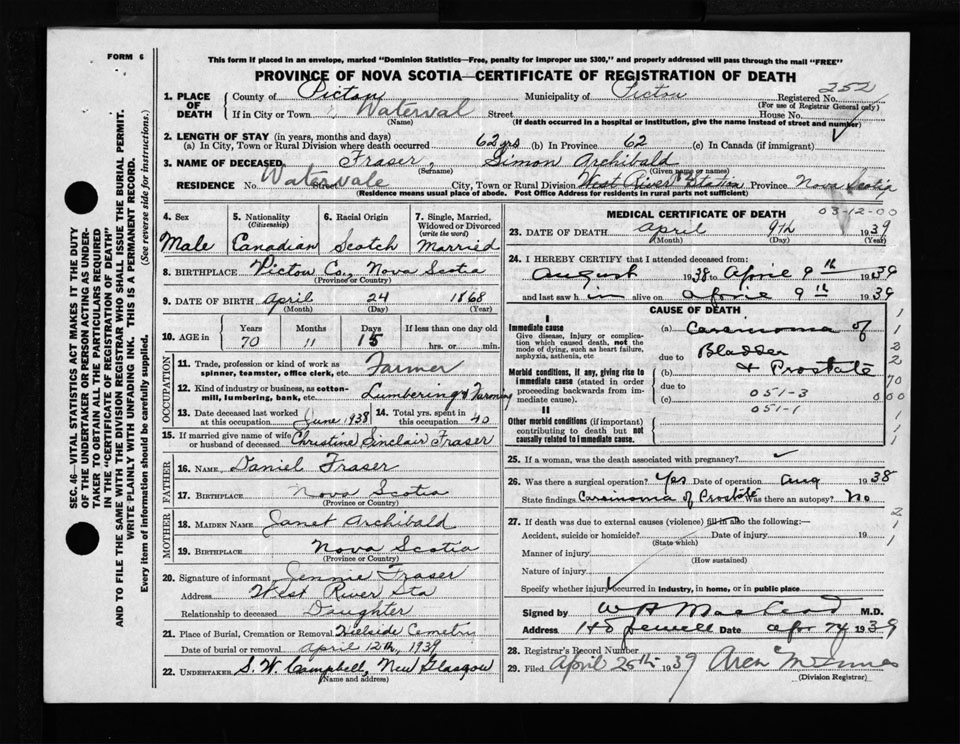 FORM 6
This form if placed in an envelope, marked "Dominion Statistics—Free, penalty for improper use $300," and properly addressed will pass through the mail "FREE"
PROVINCE OF NOVA SCOTIA—CERTIFICATE OF REGISTRATION OF DEATH
252
1. PLACE OF DEATH County of Pictou Municipality of Pictou Registered No.
(For use of Registrar General only)
If in City or Town Waterval Street House No.
(Name) (If death occurred in a hospital or institution, give the name instead of street and number)
2. LENGTH OF STAY (in years, months and days)
(a) In City, Town or Rural Division where death occurred 62 yrs (b) In Province 62 (c) In Canada (if immigrant)
3. NAME OF DECEASED Fraser, Simon Archibald
(Surname) (Given name or names)
RESIDENCE No. Watervale Street City, Town or Rural Division West River Station Province Nova Scotia
(Residence means usual place of abode. Post Office Address for residents in rural parts not sufficient)
SEC. 46—VITAL STATISTICS ACT MAKES IT THE DUTY
OF THE UNDERTAKER OR PERSON ACTING AS UNDERTAKER TO OBTAIN ALL THE PARTICULARS REQUIRED
IN THE "CERTIFICATE OF REGISTRATION OF DEATH"
AND TO FILE THE SAME WITH THE DIVISION REGISTRAR WHO SHALL ISSUE THE BURIAL PERMIT.
WRITE PLAINLY WITH UNFADING INK. THIS IS A PERMANENT RECORD.
Every item of information should be carefully supplied. (See reverse side for instructions.)
4. Sex Male
5. Nationality (Citizenship) Canadian
6. Racial Origin Scotch
7. Single, Married, Widowed or Divorced (write the word) Married
8. BIRTHPLACE Pictou Co., Nova Scotia
(Province or Country)
9. DATE OF BIRTH April 24 1868
(Month) (Day) (Year)
10. AGE in Years Months Days If less than one day old
70 11 15 hrs. or min.
OCCUPATION
11. Trade, profession or kind of work as spinner, teamster, office clerk, etc. Farmer
12. Kind of industry or business, as cotton-mill, lumbering, bank, etc. Lumbering & Farming
13. Date deceased last worked at this occupation June 1938
14. Total yrs. spent in this occupation 40
15. If married give name of wife or husband of deceased Christine Sinclair Fraser
FATHER
16. NAME Daniel Fraser
17. BIRTHPLACE Nova Scotia
(Province or Country)
MOTHER
18. MAIDEN NAME Janet Archibald
19. BIRTHPLACE Nova Scotia
(Province or Country)
20. Signature of informant Jennie Fraser
Address West River Sta
Relationship to deceased Daughter
21. Place of Burial, Cremation or Removal
Date of burial or removal April 12th, 1939
22. UNDERTAKER S. W. Campbell, New Glasgow
(Name and address)
MEDICAL CERTIFICATE OF DEATH
03-12-00
23. DATE OF DEATH April 9th 1939
(Month) (Day) (Year)
24. I HEREBY CERTIFY that I attended deceased from:
August 1938 to April 9th 1939
and last saw him alive on April 9th 1939
CAUSE OF DEATH
I
Immediate cause
Give disease, injury or complication which caused death, not the mode of dying, such as heart failure, asphyxia, asthenia, etc
(a) Carcinoma of
due to Bladder
Morbid conditions, if any, giving rise to immediate cause (stated in order proceeding backwards from immediate cause).
(b) & Prostate
due to 051-3
(c) 051-1
II
Other morbid conditions (if important) contributing to death but not causally related to immediate cause.
25. If a woman, was the death associated with pregnancy?
26. Was there a surgical operation? Yes Date of operation Aug 1938
State findings Carcinoma of Prostate Was there an autopsy? No
27. If death was due to external causes (violence) fill in also the following:—
Accident, suicide or homicide? Date of injury 19
(State which)
Manner of injury
(How sustained)
Nature of injury
Specify whether injury occurred in industry, in home, or in public place
Signed by M.D.
Address Date 1939
28. Registrar's Record Number
29. Filed April 25th 1939
(Division Registrar)